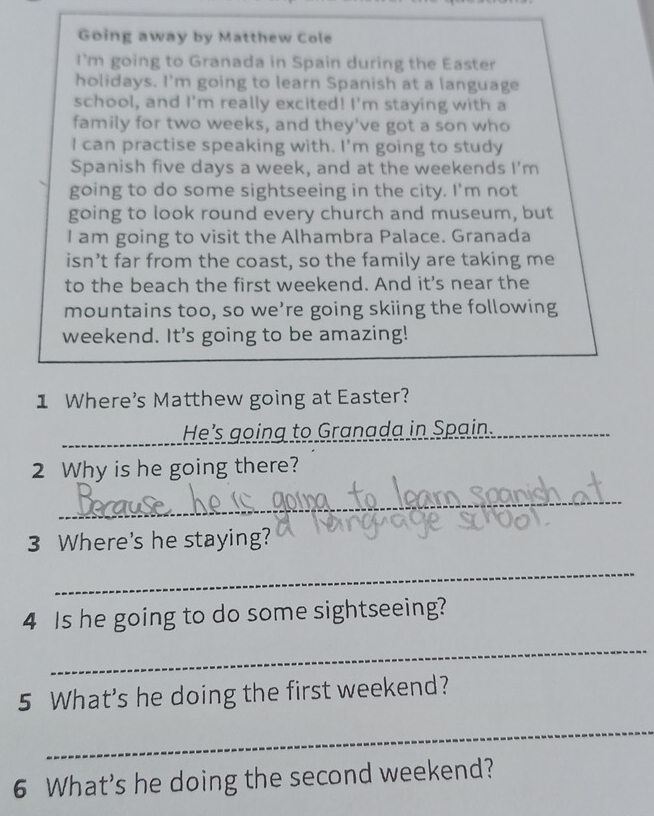 Going away by Matthew Cole
I'm going to Granada in Spain during the Easter
holidays. I'm going to learn Spanish at a language
school, and I'm really excited! I'm staying with a
family for two weeks, and they've got a son who
I can practise speaking with. I'm going to study
Spanish five days a week, and at the weekends I'm
going to do some sightseeing in the city. I'm not
going to look round every church and museum, but
I am going to visit the Alhambra Palace. Granada
isn't far from the coast, so the family are taking me
to the beach the first weekend. And it's near the
mountains too, so we're going skiing the following
weekend. It's going to be amazing!
1 Where's Matthew going at Easter?
He's going to Granada in Spain.
2 Why is he going there?
Because he is going to learn spanish at
a language school.
3 Where's he staying?
4 Is he going to do some sightseeing?
5 What's he doing the first weekend?
6 What's he doing the second weekend?